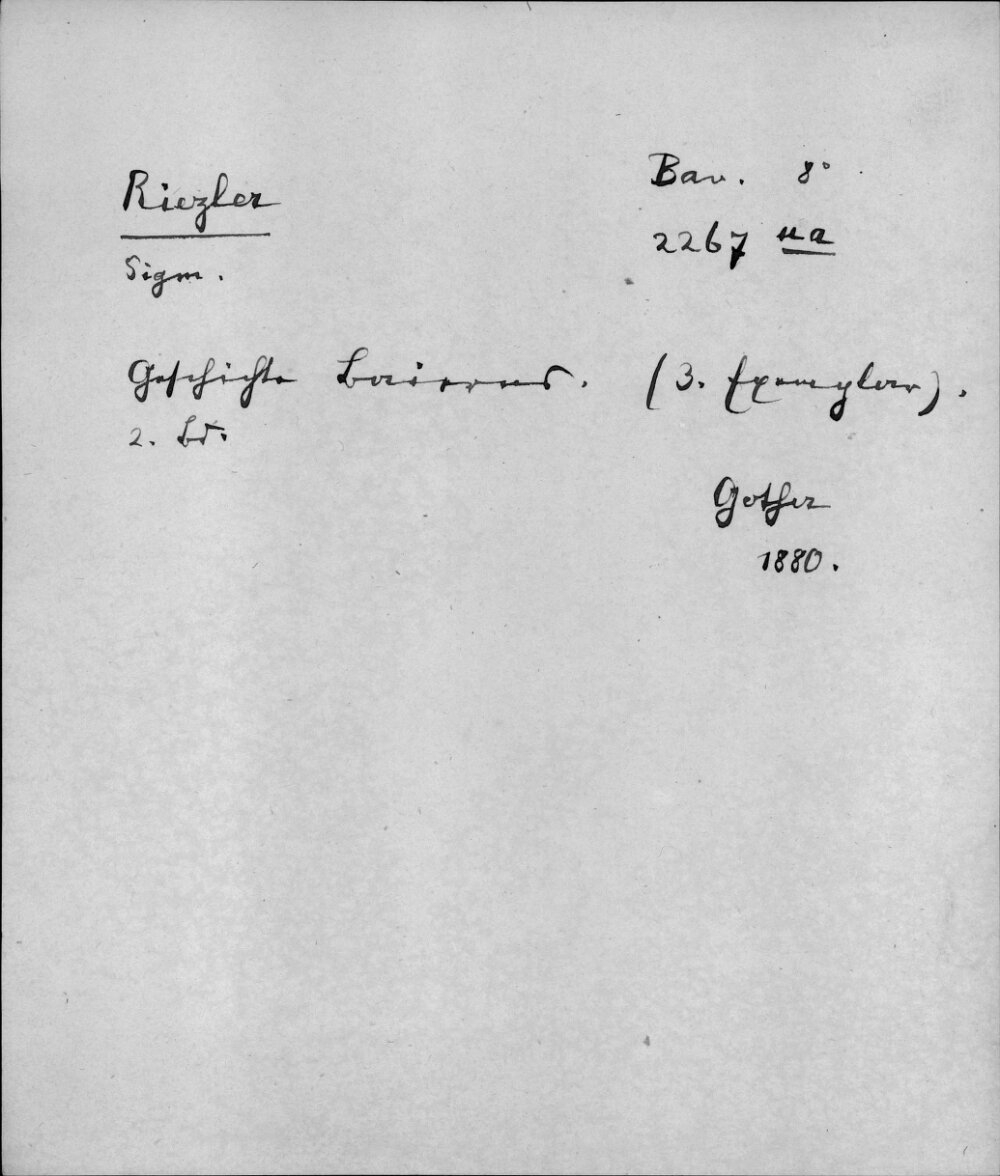 Riezler
Sigm.
Bav. 8°
2267 ua
Geschichte Baierns. (3. Exemplar).
2. Bd.
Gotha
1880.